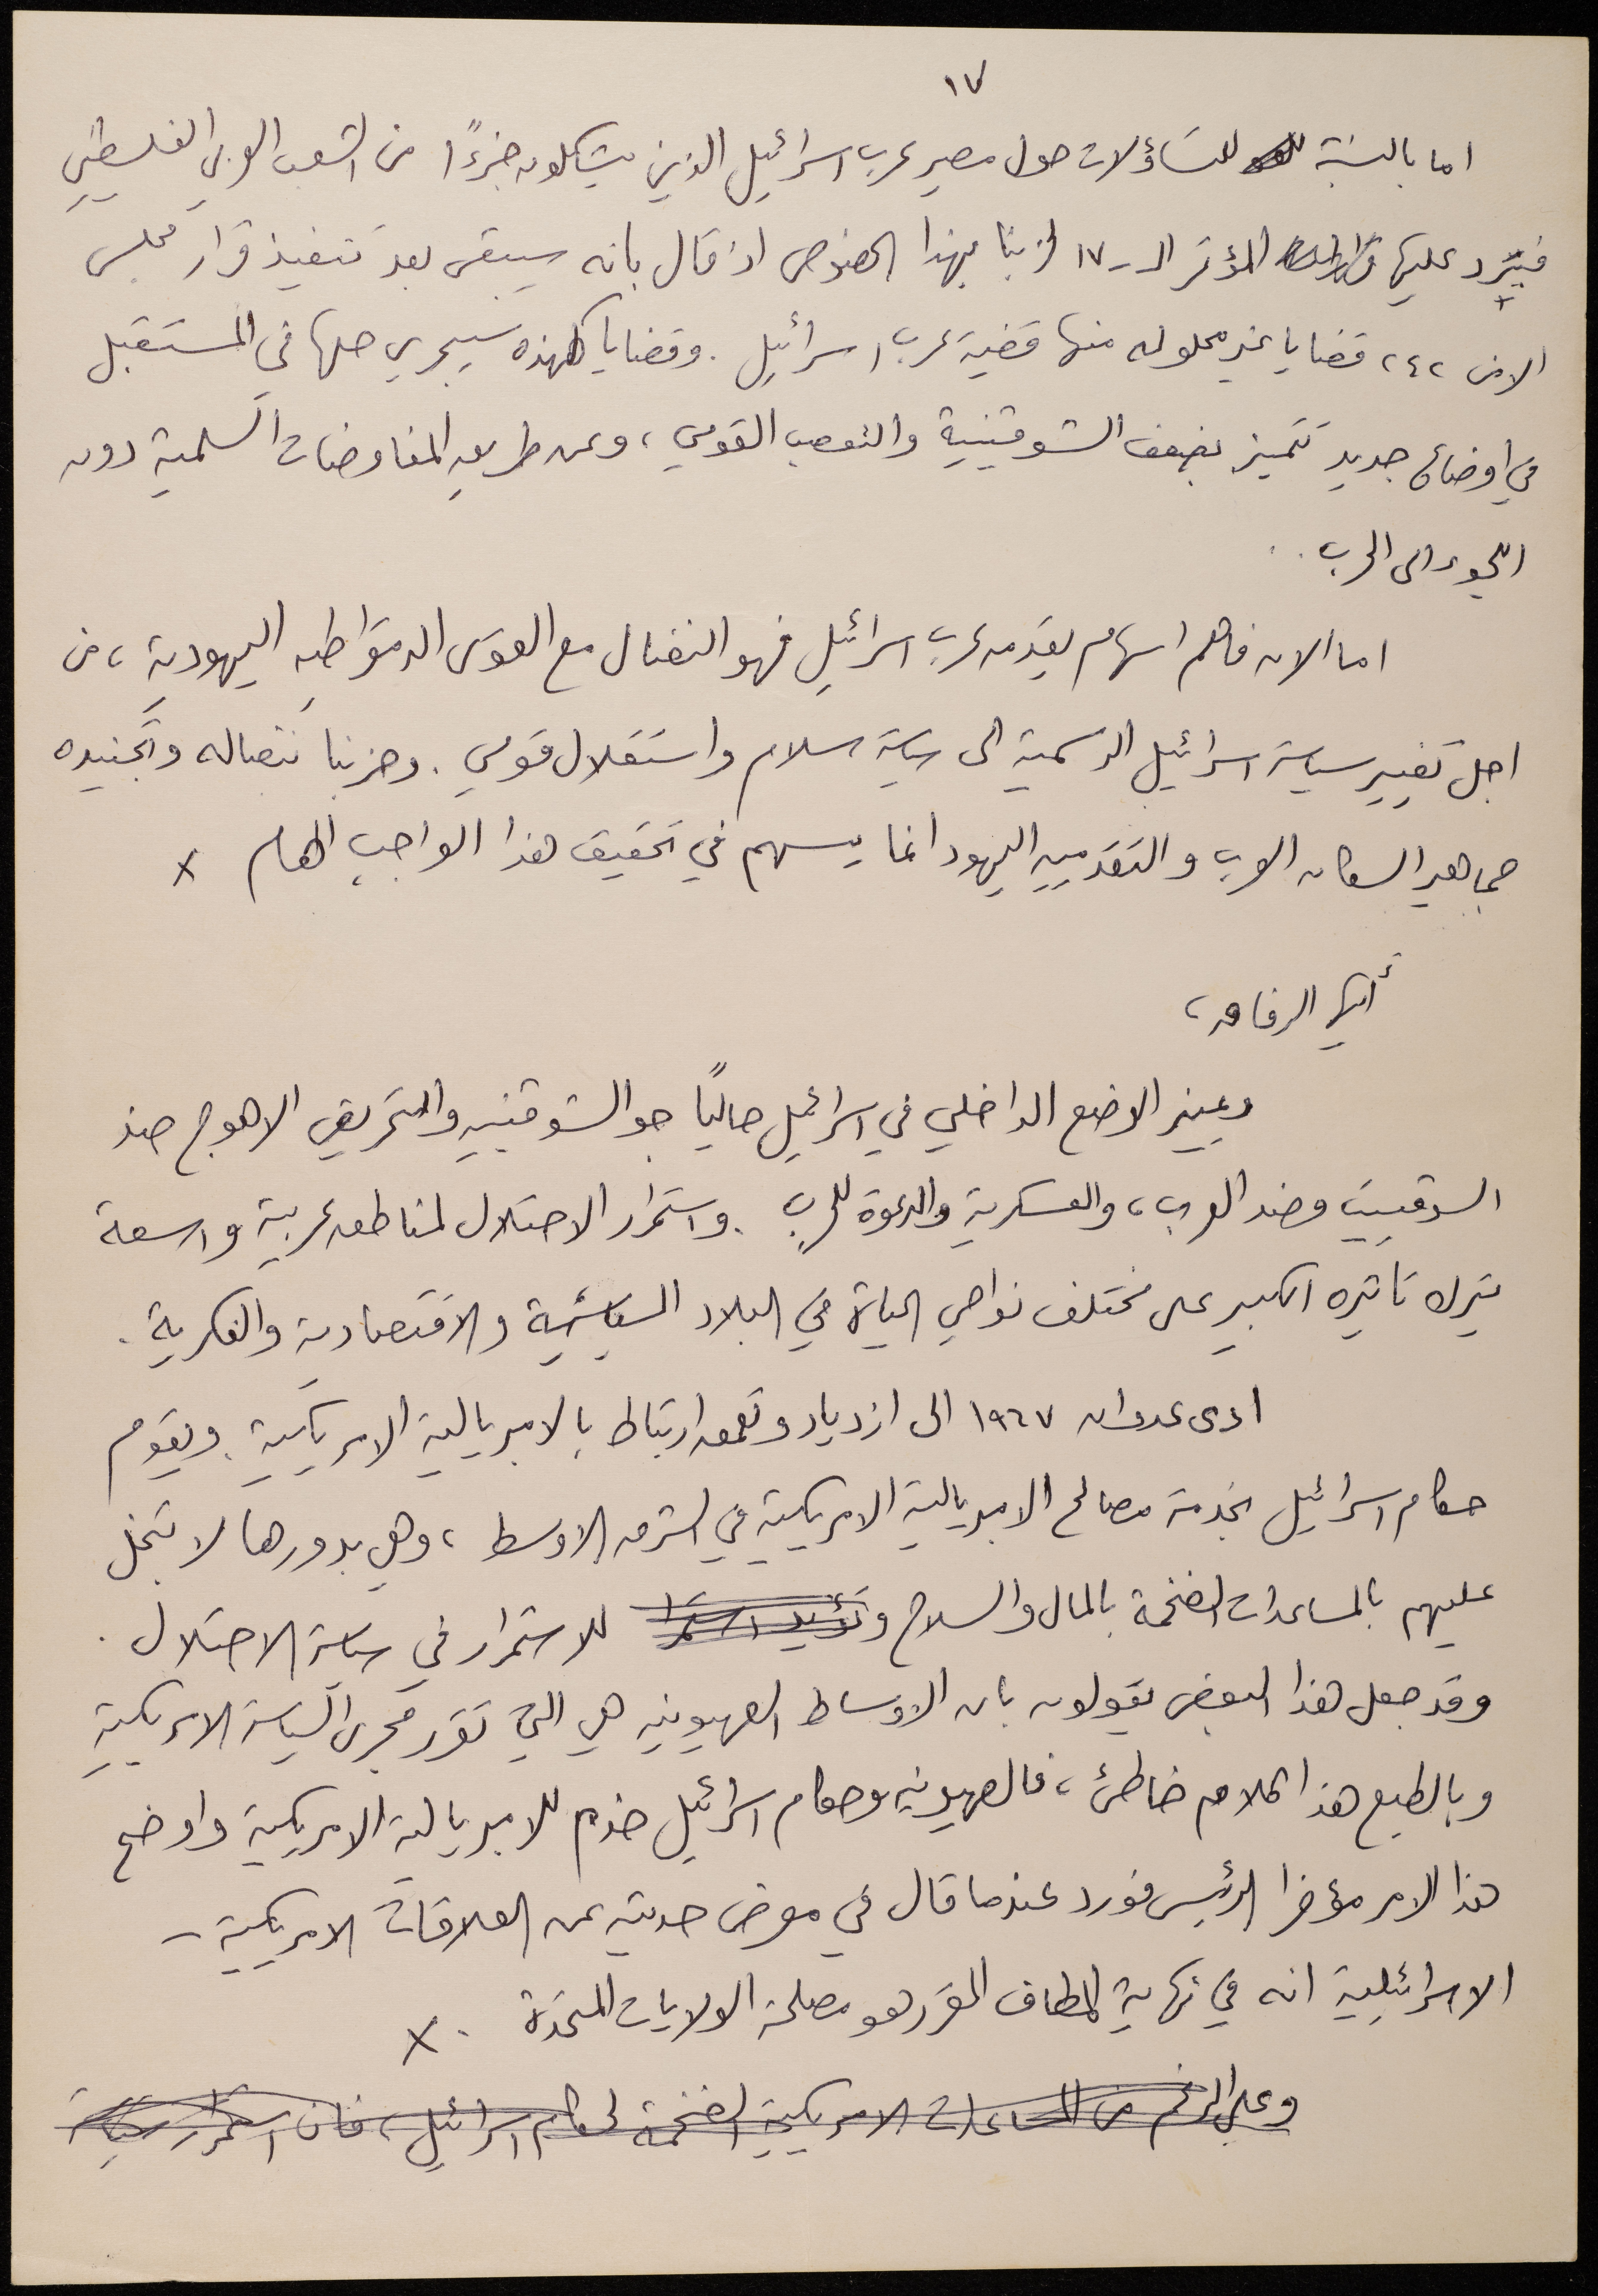 ١٧
اما بالنسبة للتساؤلات حول مصير عرب اسرائيل الذين يشكلون جزءًا من الشعب العربي الفلسطيني
فيرد عليها المؤتمر الـ-١٧ لحزبنا بهذا الخصوص اذ قال بانه سيبقى بعد تنفيذ قرار مجلس
الامن ٢٤٢ قضايا غير محلوله منها قضية عرب اسرائيل. وقضايا كهذه سيجري حلها في المستقبل
في اوضاع جديد تتميز بضعف الشوفينية والتعصب القومي، وعن طريق المفاوضات السلمية دون
اللجوء الى الحرب..
اما الان فاهم اسهام يقدمه عرب اسرائيل فهو النضال مع القوى الدمقراطيه اليهودية، من
اجل تغيير سياسة اسرائيل الرسمية الى سياسة سلام واستقلال قومي. وحزبنا بنضاله وتجنيده
جماهير السكان العرب والتقدميين اليهود انما يسهم في تحقيق هذا الواجب الهام x
أيها الرفاق،
ويميز الوضع الداخلي في اسرائيل حاليًا جو الشوفينيه والتحريض الاهوج ضد
السوفييت وضد العرب، والعسكرية والدعوة للحرب. واستمرار الاحتلال لمناطق عربية واسعة
يترك تاثيره الكبير على مختلف نواحي الحياة في البلاد السياسية والاقتصادية والفكرية.
ادى عدوان ١٩٦٧ الى ازدياد وتعمق ارتباط بالامبريالية الامريكية. ويقوم
حكام اسرائيل بخدمة مصالح الامبريالية الامريكية في الشرق الاوسط، وهي بدورها لا تبخل
عليهم بالمساعدات الضخمة بالمال والسلاح وتؤيد استمرار للاستمرار في سياسة الاحتلال.
وقد جعل هذا البعض يقولون بان الاوساط الصهيونيه هي التي تقرر مجرى السياسة الامريكية
وبالطبع هذا الكلام خاطئ، فالصهيونيه وحكام اسرائيل خدم للامبريالية الامريكية واوضح
هذا الامر مؤخرا الرئيس فورد عندما قال في معرض حديثه عن العلاقات الامريكية -
الاسرائيلية انه في نهاية المطاف المقرر هو مصلحة الولايات المتحدة. x
وعلى الرغم من المساعدات الامريكية الضخمة لحكام اسرائيل، فان استمرار سياسة